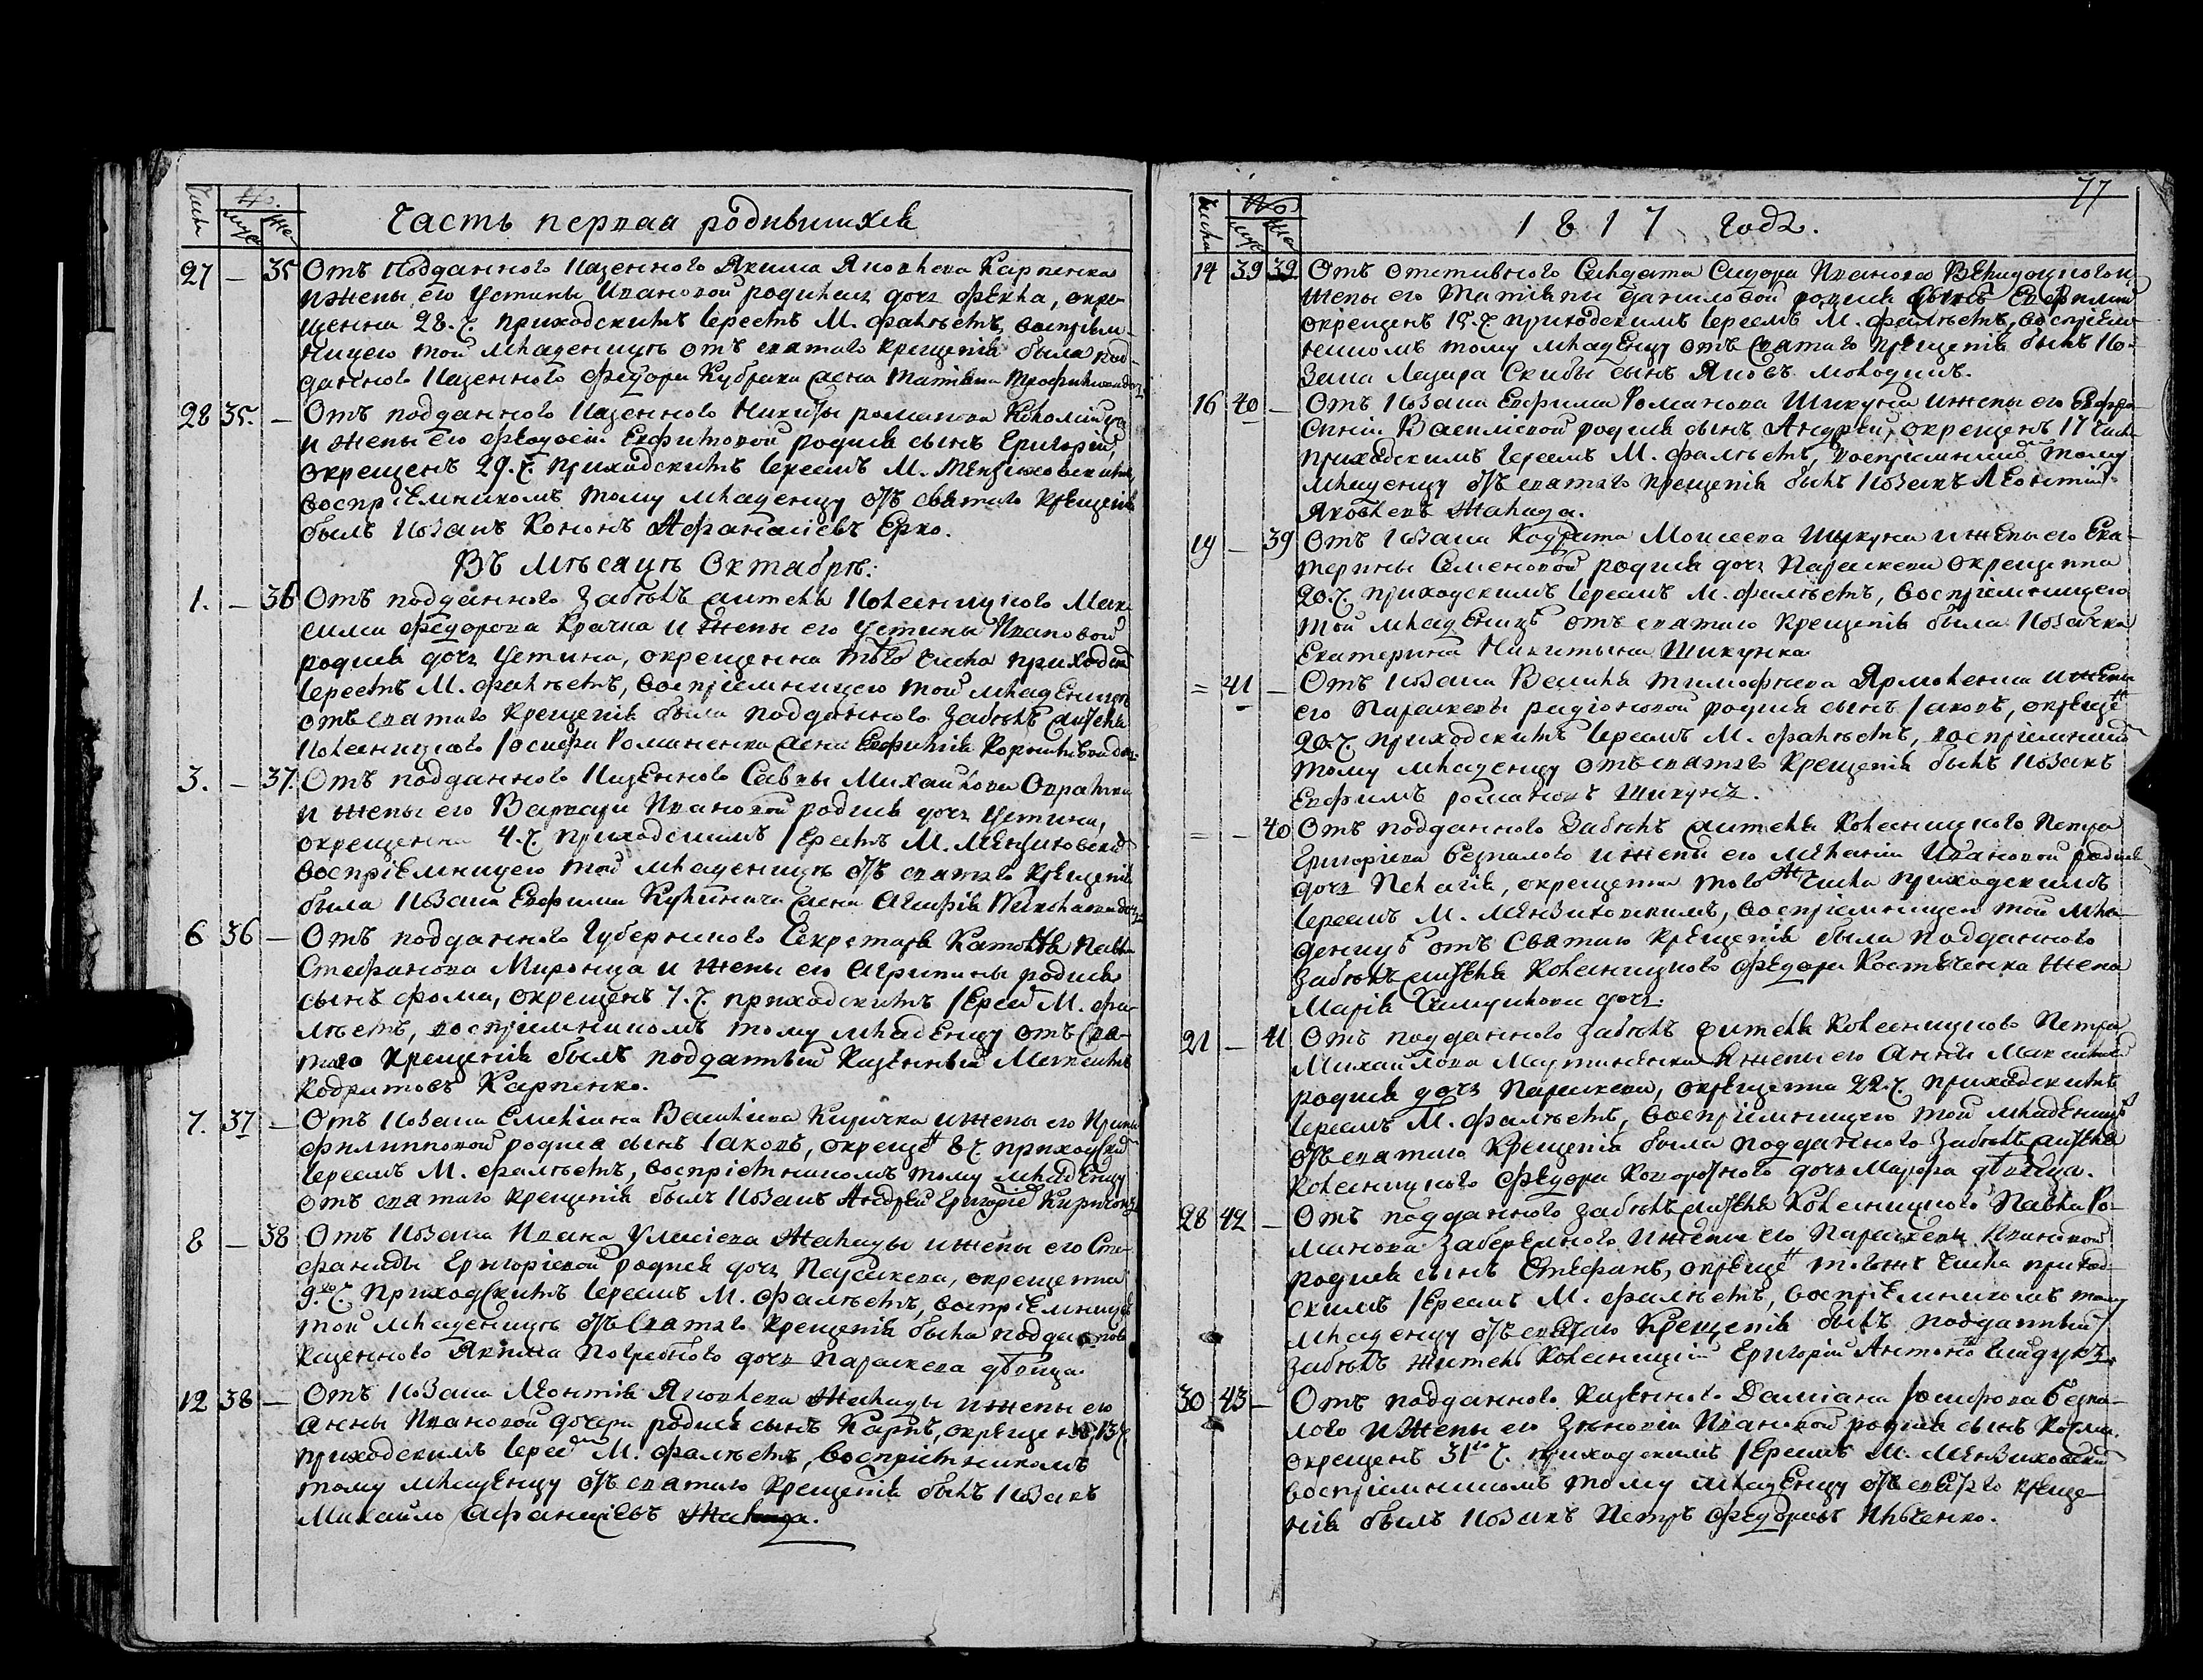 Часть первая родившихся
Числа
№.
муж
же
27 — 35 Отъ подданного казенного Якима Яковлева Карпенка
и жены его Устины Ивановой родилась дочь Фекла, окре-
щенна 28. ч. приходскимъ Іереемъ М. Фалѣемъ, воспріем-
ницею той младеницѣ отъ святаго крещенія была под-
данного казенного Федора Кубрака жена Татіана Трофимова доч
28 35. — Отъ подданного казенного Никиты Романова
и жены его Феодосіи Евфимовой родися сынъ Григорій,
окрещенъ 29. ч. приходскимъ Іереемъ М. Мензиковскимъ,
воспріемникомъ тому младенцу отъ святаго крещенія
былъ козакъ Кононъ Афанасіевъ Ерко.
Въ Мѣсяцѣ Октябрѣ:
1. — 36 Отъ подданного Забѣлъ жителя Колесницкого Мак-
сима Федорова Крачка и жены его Устины Ивановой
родися дочь Устина, окрещенна того числа приходск
Іереемъ М. Фалѣемъ, воспріемницею той младеницѣ
отъ святаго крещенія была подданного Забѣлъ жителя
Колесницкого Іосифа Романенка жена Евфимія
3. — 37. Отъ подданного казенного Саввы Михайлова
и жены его Варвари Ивановой родися дочь Устина,
окрещенна 4. ч. приходскимъ Іереемъ М. Мензиковскимъ
воспріемницею той младеницѣ отъ святаго крещенія
была козака Евфима жена Агафія
6 36 — Отъ подданного Губернского Секретаря Павла
Стефанова Миронца и жены его Агрипины родися
сынъ Фома, окрещенъ 7. ч. приходскимъ Іерей М. Фа-
лѣемъ, воспріемникомъ тому младенцу отъ свя-
таго крещенія былъ подданный казенный
Кодратовъ Карпенко.
7. 37 — Отъ козака Емеліана Василіева Киричка и жены его Ирины
Филипповой родися сынъ Іаковъ, окрещен 8 ч. приходским
Іереемъ М. Фалѣемъ, воспріемникомъ тому младенцу
отъ святаго крещенія былъ козакъ Андрей Григоріе
8 — 38 Отъ козака Ивана Уласіева Жалиды и жены его Сте-
фаниды Григоріевой родися дочь Параскева, окрещенна
9.го ч. приходскимъ Іереемъ М. Фалѣемъ, воспріемницею
той младеницѣ отъ святаго крещенія была подданого
казенного Якима Погребного дочь Параскева дѣвица.
12 38 — Отъ козака Леонтія Яковлева Жалиды и жены его
Анны Ивановой дочери родися сынъ Карпъ, окрещенъ 13 ч
приходскимъ Іерее М. Фалѣемъ, воспріемникомъ
тому младенцу отъ святаго крещенія былъ козакъ
Михайло Афанасіевъ Жалида.
77
1817 Годъ.
Числа
№
муж
же
14 39 39 Отъ отставного Солдата Сидора Иванова и
жены его Татіяны Даниловой родися сынъ Евфимій
окрещенъ 15. ч. приходскимъ Іереемъ М. Фалѣемъ, воспріем-
никомъ тому младенцу отъ святаго крещенія былъ ко-
зака Лазара Скибы сынъ Яковъ молодикъ.
16 40 — Отъ козака Евфима Романова Шикуна и жены его Евфро-
синіи Василіевой родися сынъ Андрей, окрещенъ 17 числ
приходскимъ Іереемъ М. Фалѣемъ, воспріемником тому
младенцу отъ святаго крещенія былъ козакъ Леонтій
Яковлевъ Жалида.
19 — 39 Отъ козака Кодрата Моисеева Шикуна и жены его Ека-
терины Семеновой родися дочь Параскева окрещенна
20. ч. приходскимъ Іереемъ М. Фалѣемъ, воспріемницею
той младеницѣ отъ святаго крещенія была козачка
Екатерина Никитына Шикунка
= 41 — Отъ козака Василя Тимофѣева Ярмоленка и жены
его Параскевы Радіоновой родися сынъ Іаковъ, окреще
20. ч. приходскимъ Іереемъ М. Фалѣемъ, воспріемником
тому младенцу отъ святаго крещенія былъ козакъ
Евфимъ Романовъ Шикунъ.
= — 40 Отъ подданного Забѣлъ жителя Колесницкого Петра
Григоріева Безпалого и жены его Меланіи Ивановой родися
дочь Пелагія, окрещенна того ж числа приходскимъ
Іереемъ М. Мензиковскимъ, воспріемницею той мла-
деницѣ отъ святаго крещенія была подданного
Забѣлъ жителя Колесницкого Федора Костюченка жена
Марія дочь.
21 — 41 Отъ подданного Забѣлъ жителя Колесницкого Петра
Михайлова Мартиненка и жены его Анны Максимо
родися дочь Параскева, окрещенна 22. ч. приходскимъ
Іереемъ М. Фалѣемъ, воспріемницею той младеницѣ
отъ святаго крещенія была подданного Забѣлъ жителя
Колесницкого Федора дочь Марфа дѣвица.
28 42 — Отъ подданного Забѣлъ жителя Колесницкого Павла Ро-
манова Забережного и жены его Параскевы Ивановой
родися сынъ Стефанъ, окреще того жъ числа приход-
скимъ Іереемъ М. Фалѣемъ, воспріемникомъ тому
младенцу отъ святаго крещенія былъ подданный
Забѣлъ житель Колесницкій Григорій Антоно
30 43 — Отъ подданного казенного Даміана Іосифова Безпа-
лого и жены его Зѣновіи Ивановой родися сынъ Козма
окрещенъ 31го ч. приходскимъ Іереемъ М. Мензиковским
воспріемникомъ тому младенцу отъ святаго креще
нія былъ козакъ Петръ Федоровъ Ильченко.